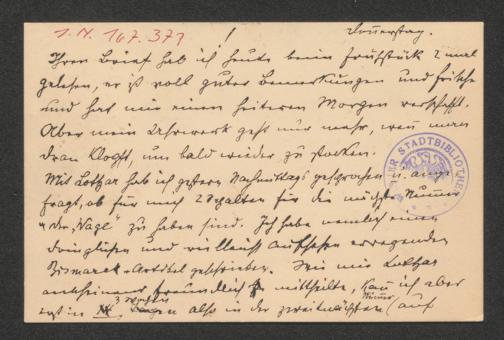 I.N. 167.371
Donnerstag.
!
Ihren Brief hab ich heute beim Frühstück 2 mal
gelesen, er ist voll guter Bemerkungen und Frische
und hat mir einen heiteren Morgen verschafft.
Aber mein Uhrwerk geht nur mehr, wenn man
dran klopft, um bald wieder zu stocken.
Mit Lothar hab ich gestern Nachmittags gesprochen u. ange-
fragt, ob für mich 2 Spalten für die nächste Nummer
der "Wage" zu haben sind. Ich habe nemlich einen
dringlichen und vielleicht Aufsehen erregenden
Bismarck-Artikel geschrieben. Wie mir Lothar
anscheinend freundlich mittheilte, kann ich aber
erst in 3 Wochen also in der zweitnächsten Numer (auf
WIENER STADTBIBLIOTHEK